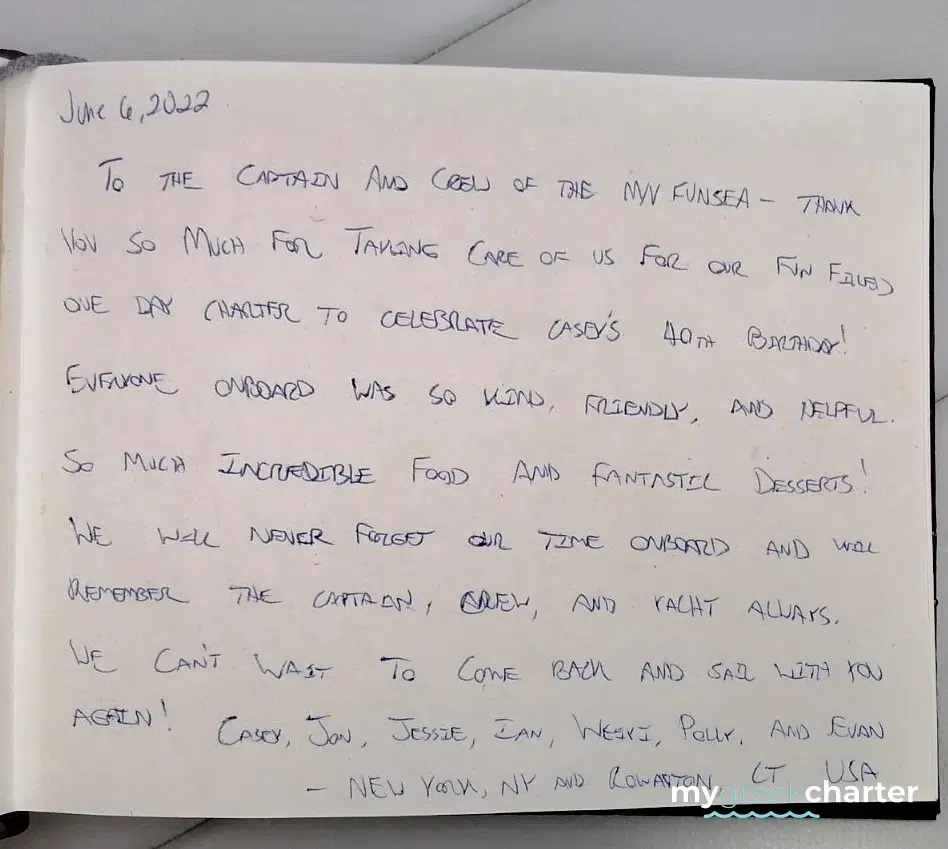 June 6, 2022
To THE CAPTAIN AND CREW OF THE M/V FUNSEA – THANK
YOU SO MUCH FOR TAKING CARE OF US FOR OUR FUN FILLED
ONE DAY CHARTER TO CELEBRATE CASEY'S 40TH BIRTHDAY!
EVERYONE ONBOARD WAS SO KIND, FRIENDLY, AND HELPFUL.
SO MUCH INCREDIBLE FOOD AND FANTASTIC DESSERTS!
WE WILL NEVER FORGET OUR TIME ONBOARD AND WILL
REMEMBER THE CAPTAIN, CREW, AND YACHT ALWAYS.
WE CAN'T WAIT TO COME BACK AND SAIL WITH YOU
AGAIN! CASEY, JON, JESSIE, IAN, POLLY, AND EVAN
– NEW YORK, NY AND ROWAYTON, CT USA
mygreekcharter